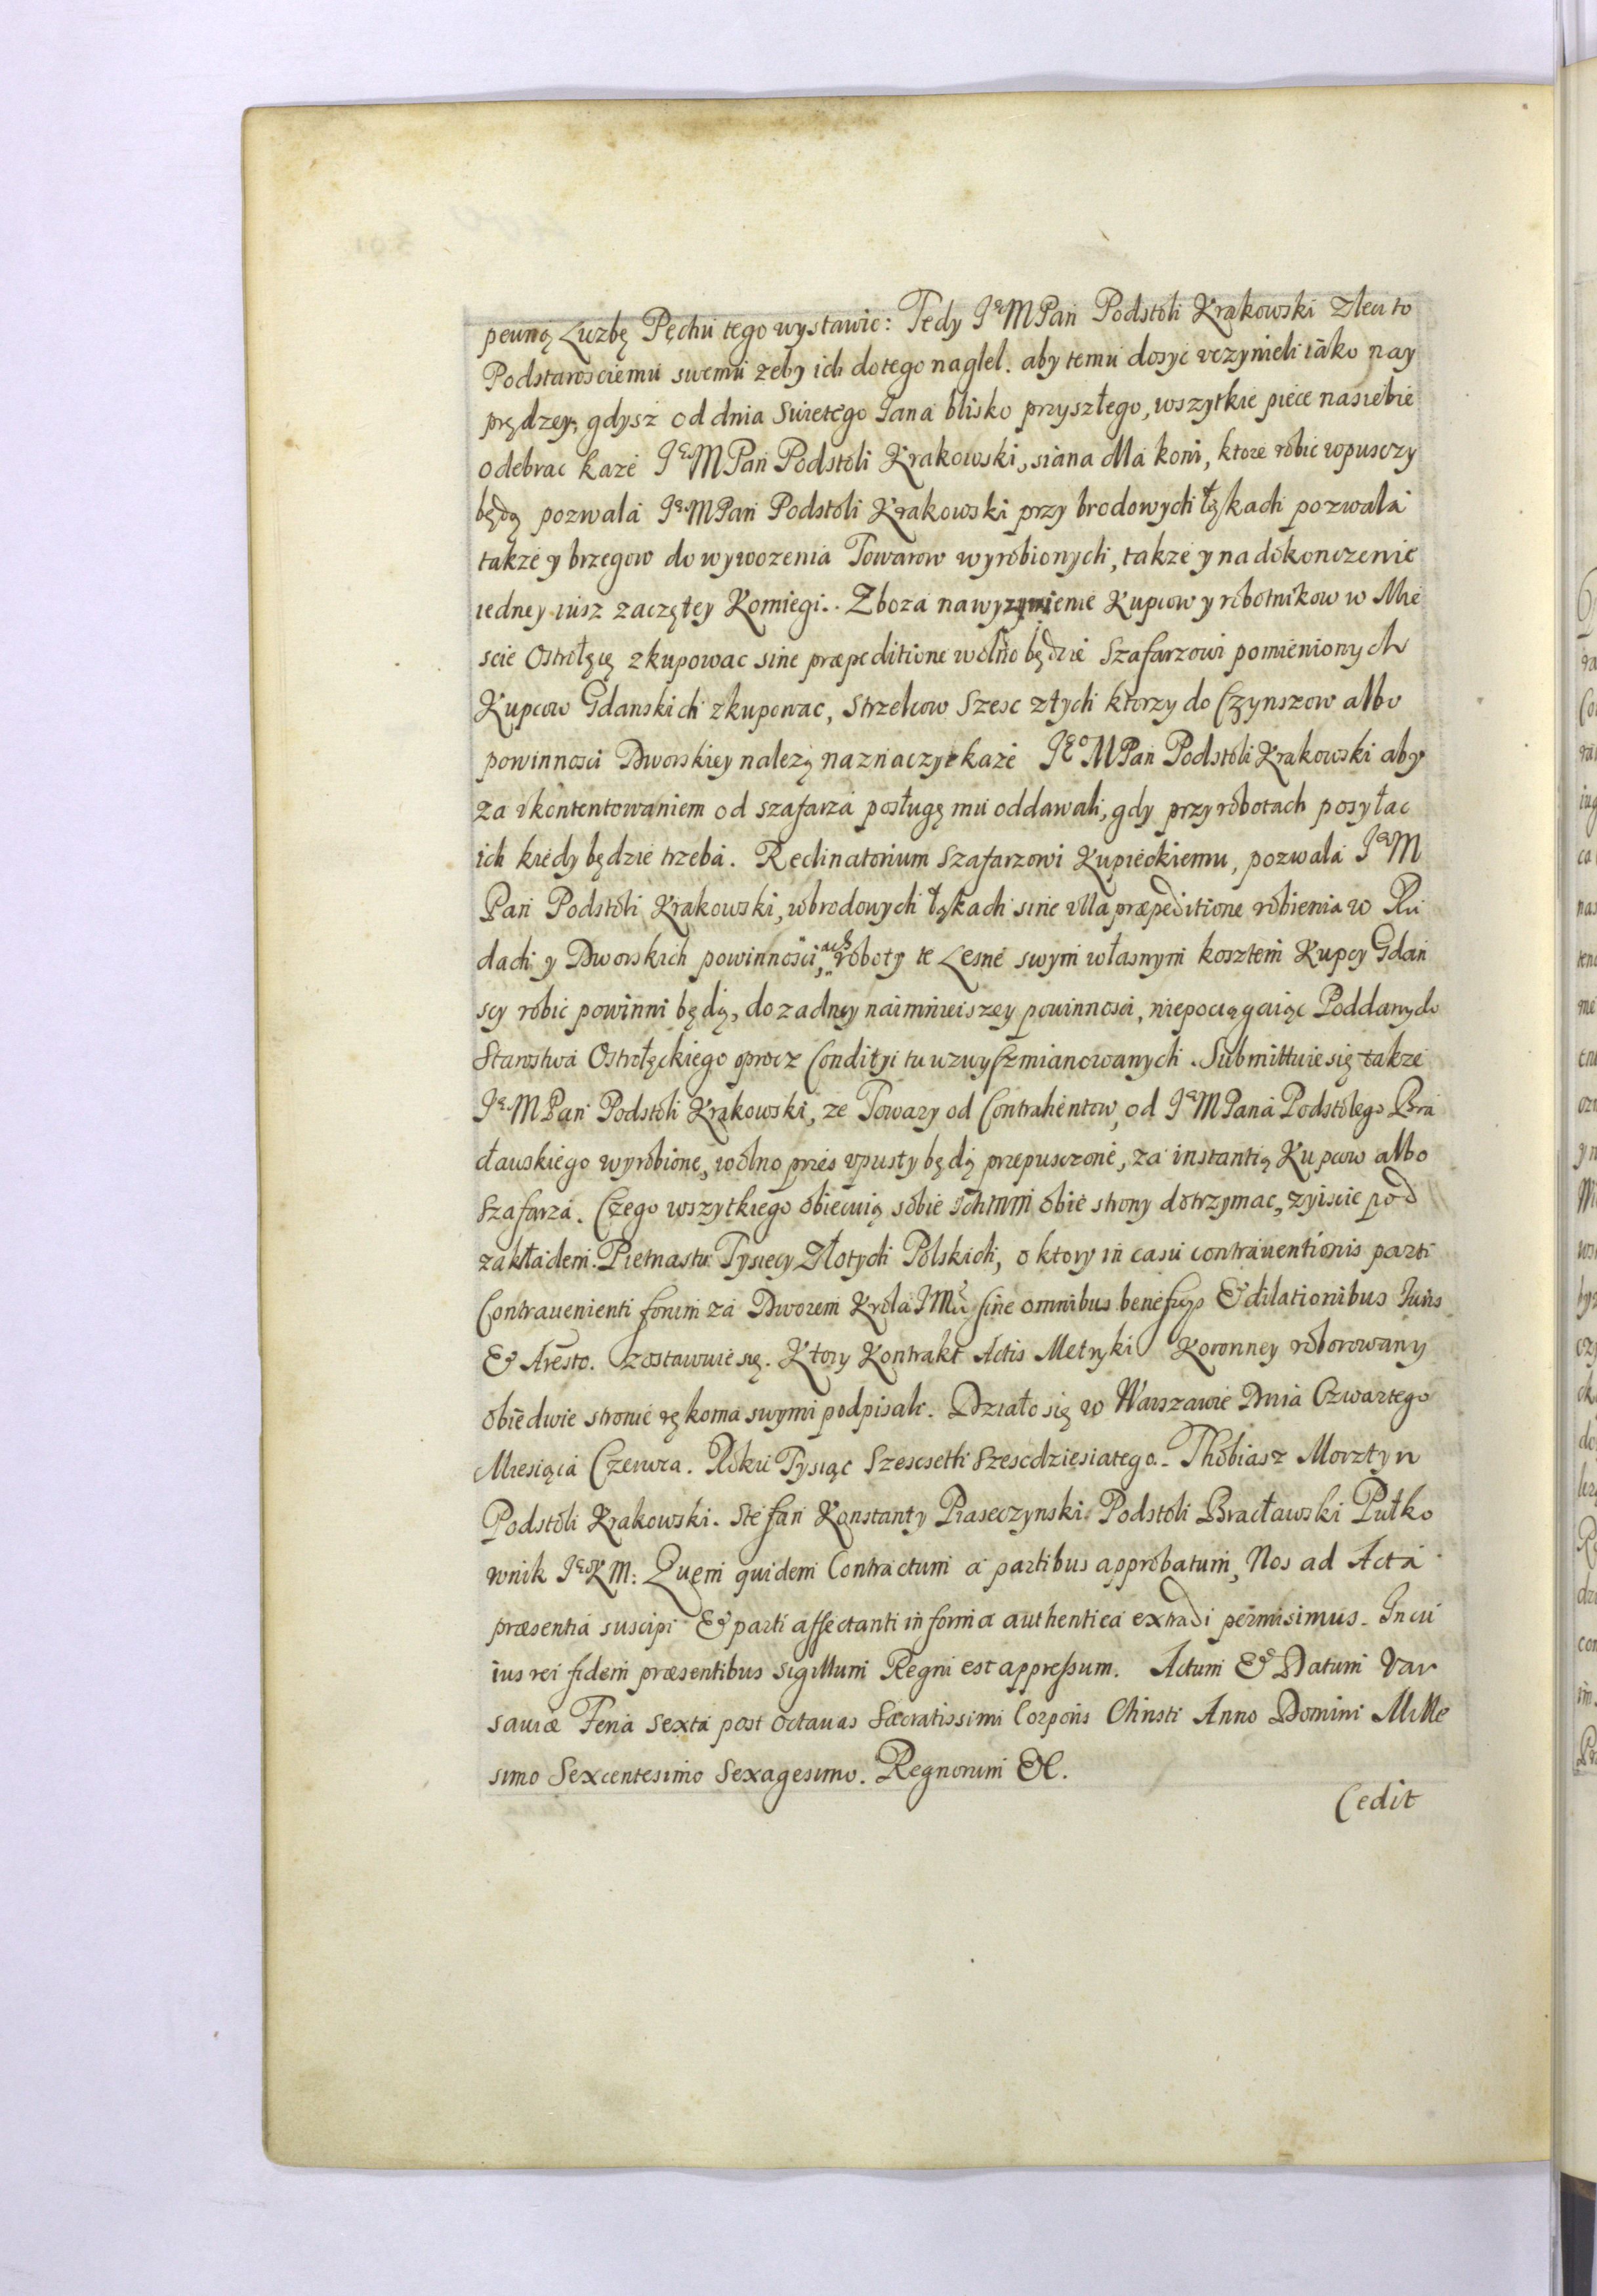 pewną Liczbę Pęchu tego wystawic: Tedy Jeº MPan Podstoli Krakowski zleci to
Podstarosciemu swemu zeby ich do tego naglel. aby temu dosyc vczynieli iako nay
prędzey, gdysz od dnia Swietego Jana blisko przyszłego, wszytkie piece nasiebie
odebrac kaze Jeº MPan Podstoli Krakowski, siana dla koni, ktore robic wpusczy
będą pozwala Jeº MPan Podstoli Krakowski przy brodowych łąkach pozwala
takze y brzegow do wywozenia Towarow wyrobionych, takze y na dokonczenie
iedney iusz zaczętey Komiegi. Zboza na wyzywienie Kupcow y robotnikow w Mie
scie Ostrołęcę zkupowac sine præpeditione wolno będzie Szafarzowi pomienionych
Kupcow Gdanskich zkupowac, Strzelcow Szesc ztych ktorzy do Czynszow albo
powinnosci Dworskiey nalezą naznaczyc kaze Jeº MPan Podstoli Krakowski aby
za vkontentowaniem od szafarza posługę mu oddawali, gdy przy robotach posyłac
ich kiedy będzie trzeba. Reclinatorium Szafarzowi Kupieckiemu, pozwala Jeº M
Pan Podstoli Krakowski, w brodowych łąkach sine vlla præpeditione robienia w Ru
dach y Dworskich powinnosciach, roboty te Lesne swym własnym kosztem Kupcy Gdan
scy robic powinni będą, do zadney naimnieiszey powinnosci, niepociągaiąc Poddanych
Starostwa Ostrołęckiego oprocz Condityi tu wzwysz mianowanych. Submittuie się takze
Jeº MPan Podstoli Krakowski, ze Towary od Contrahentow, od Jeº MPana Podstolego Bra
cławskiego wyrobione, wolno przes vpusty będą przepusczone, za instantią Kupcow albo
Szafarza. Czego wszytkiego obiecuią sobie Ichmm obie strony dotrzymac, zyiscic pod
zakładem Pietnastu Tysiecy Złotych Polskich, o ktory in casu contrauentionis parti
Contrauenienti forum za Dworem Krola JMci sine omnibus beneficijs & dilationibus Juris
& Aresto. zostawuie się. Ktory Kontrakt Actis Metryki Koronney roborowany
obie dwie stronie rękoma swymi podpisali. Działo się w Warszawie Dnia Czwartego
Miesiąca Czerwca. Roku Tysiąc Szescsetti Szescdziesiatego. Thobiasz Morztyn
Podstoli Krakowski. Stefan Konstanty Piaseczynski Podstoli Bracławski Pułko
wnik Jeº K M: Quem quidem Contractum a partibus approbatum, Nos ad Acta
præsentia suscipi & parti affectanti in forma authentica extradi permisimus. In cu
ius rei fidem præsentibus sigillum Regni est appressum. Actum & Datum Var
sauiæ Feria Sexta post octauas Sacratissimi Corporis Christi Anno Domini Mille
simo Sexcentesimo Sexagesimo. Regnorum &c.
Cedit